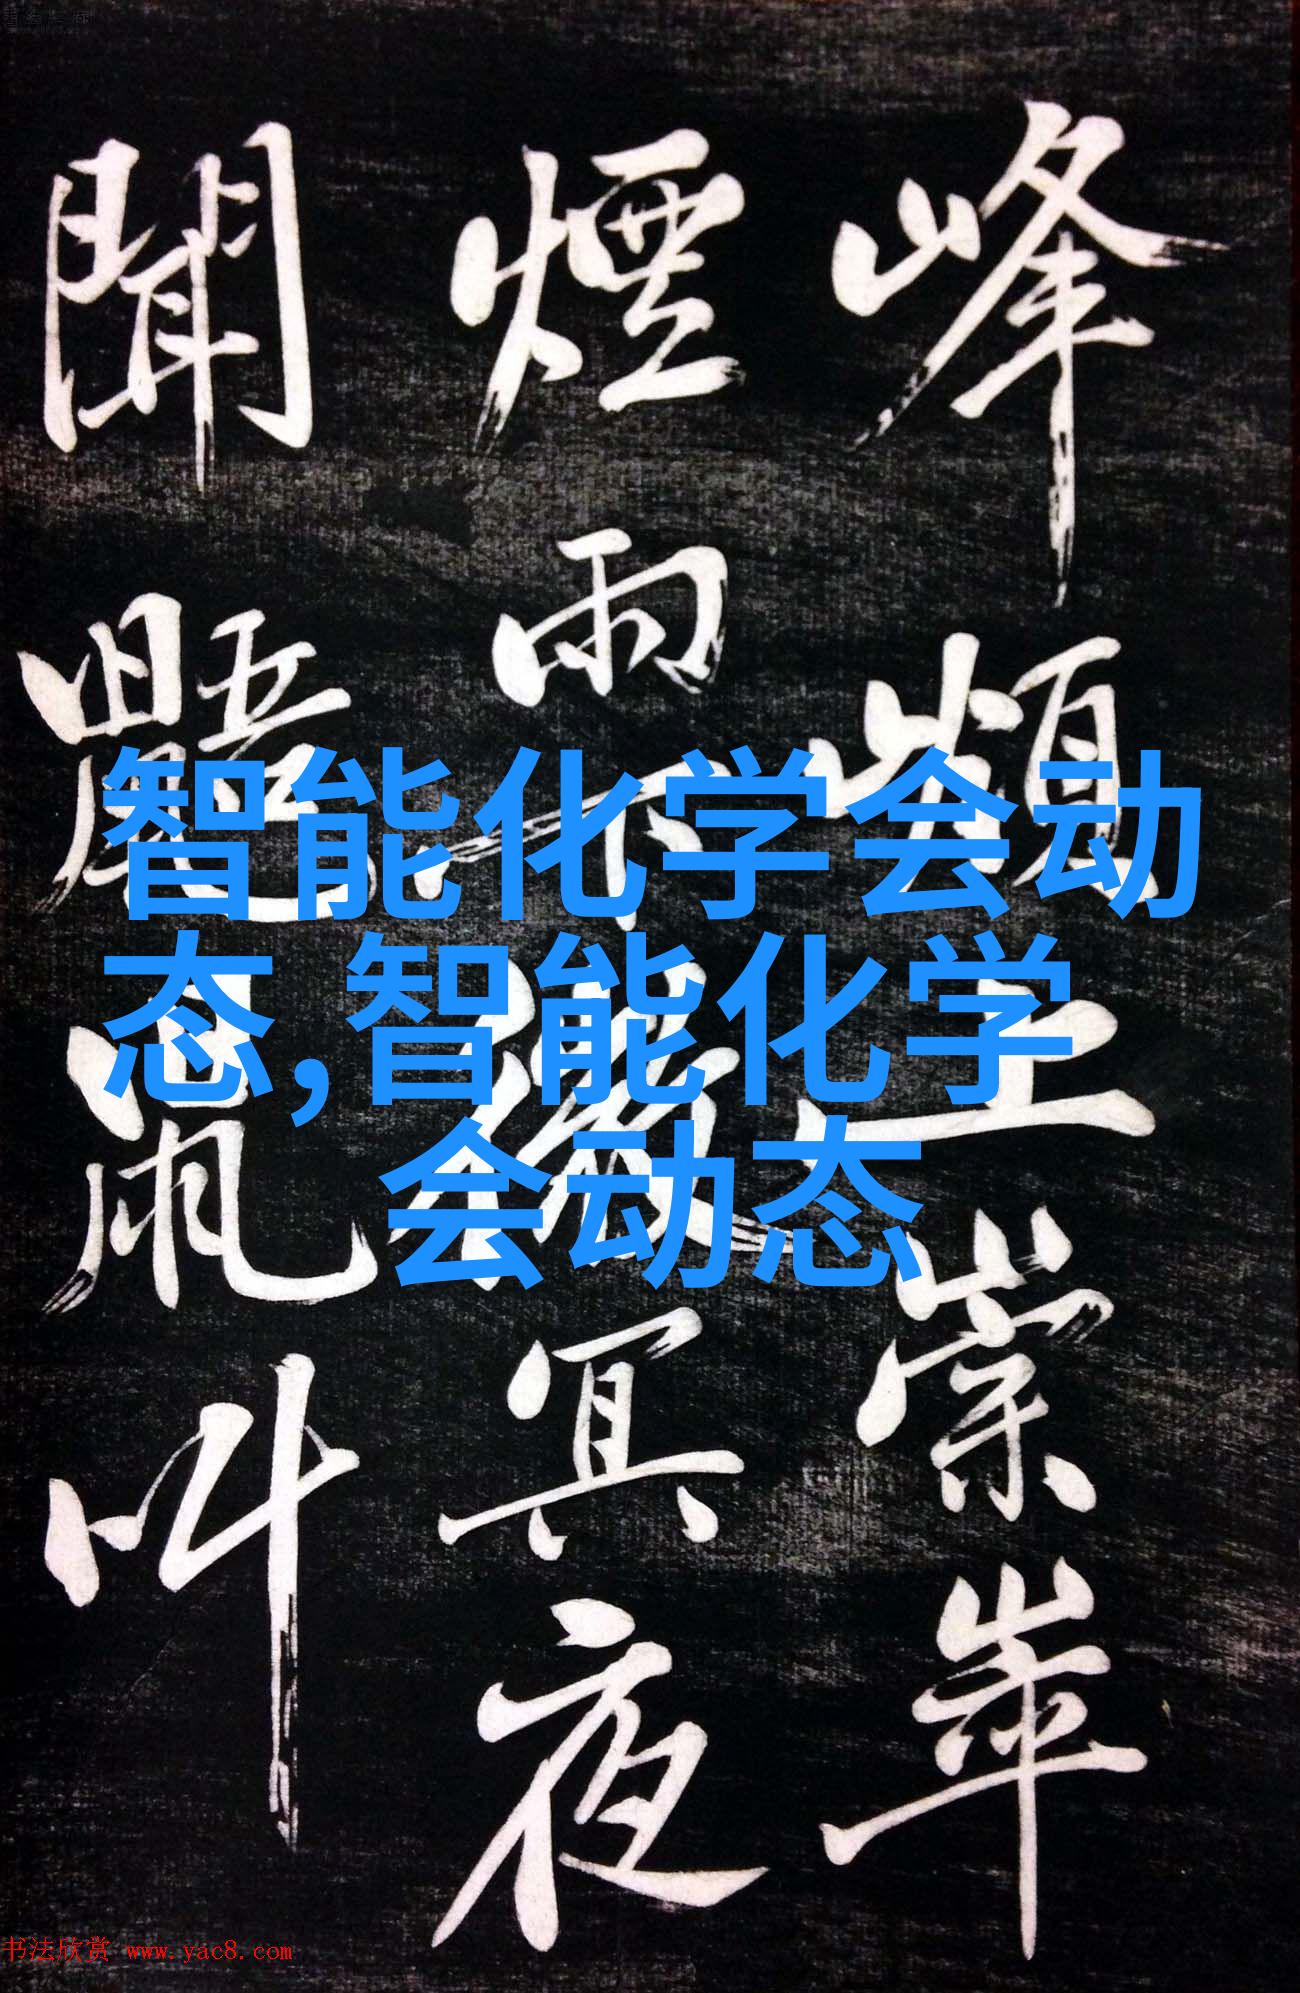 峰上崇崒
煙雨下微冥夜
聞鼯鼠叫
智能化学会动
态,智能化学
会动态
书法欣赏 www.yac8.com